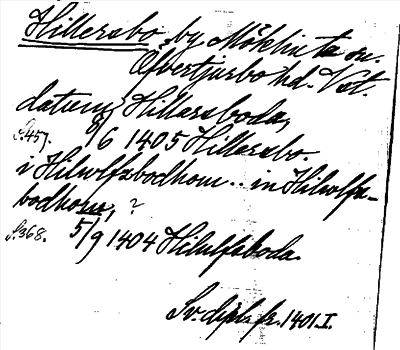 Hillersbo, by Möklinta sn.
Öfvertjurbo hd. Vst.
datum Hillersboda,
S.457. 8/6 1405 Hillersbo.
i Hilwlfsbodhom .. in Hilwlfs-
bodhom, ?
S.368. 5/9 1404 Hilulfsboda.
Sv. dipl. fr. 1401. I.